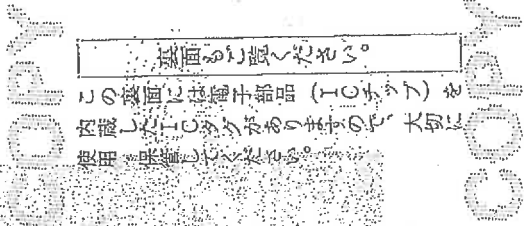 裏面もご覧ください。
この裏面には電子部品（ICチップ）を
内蔵したICタグがありますので、大切に
使用・保管してください。
COPY
COPY